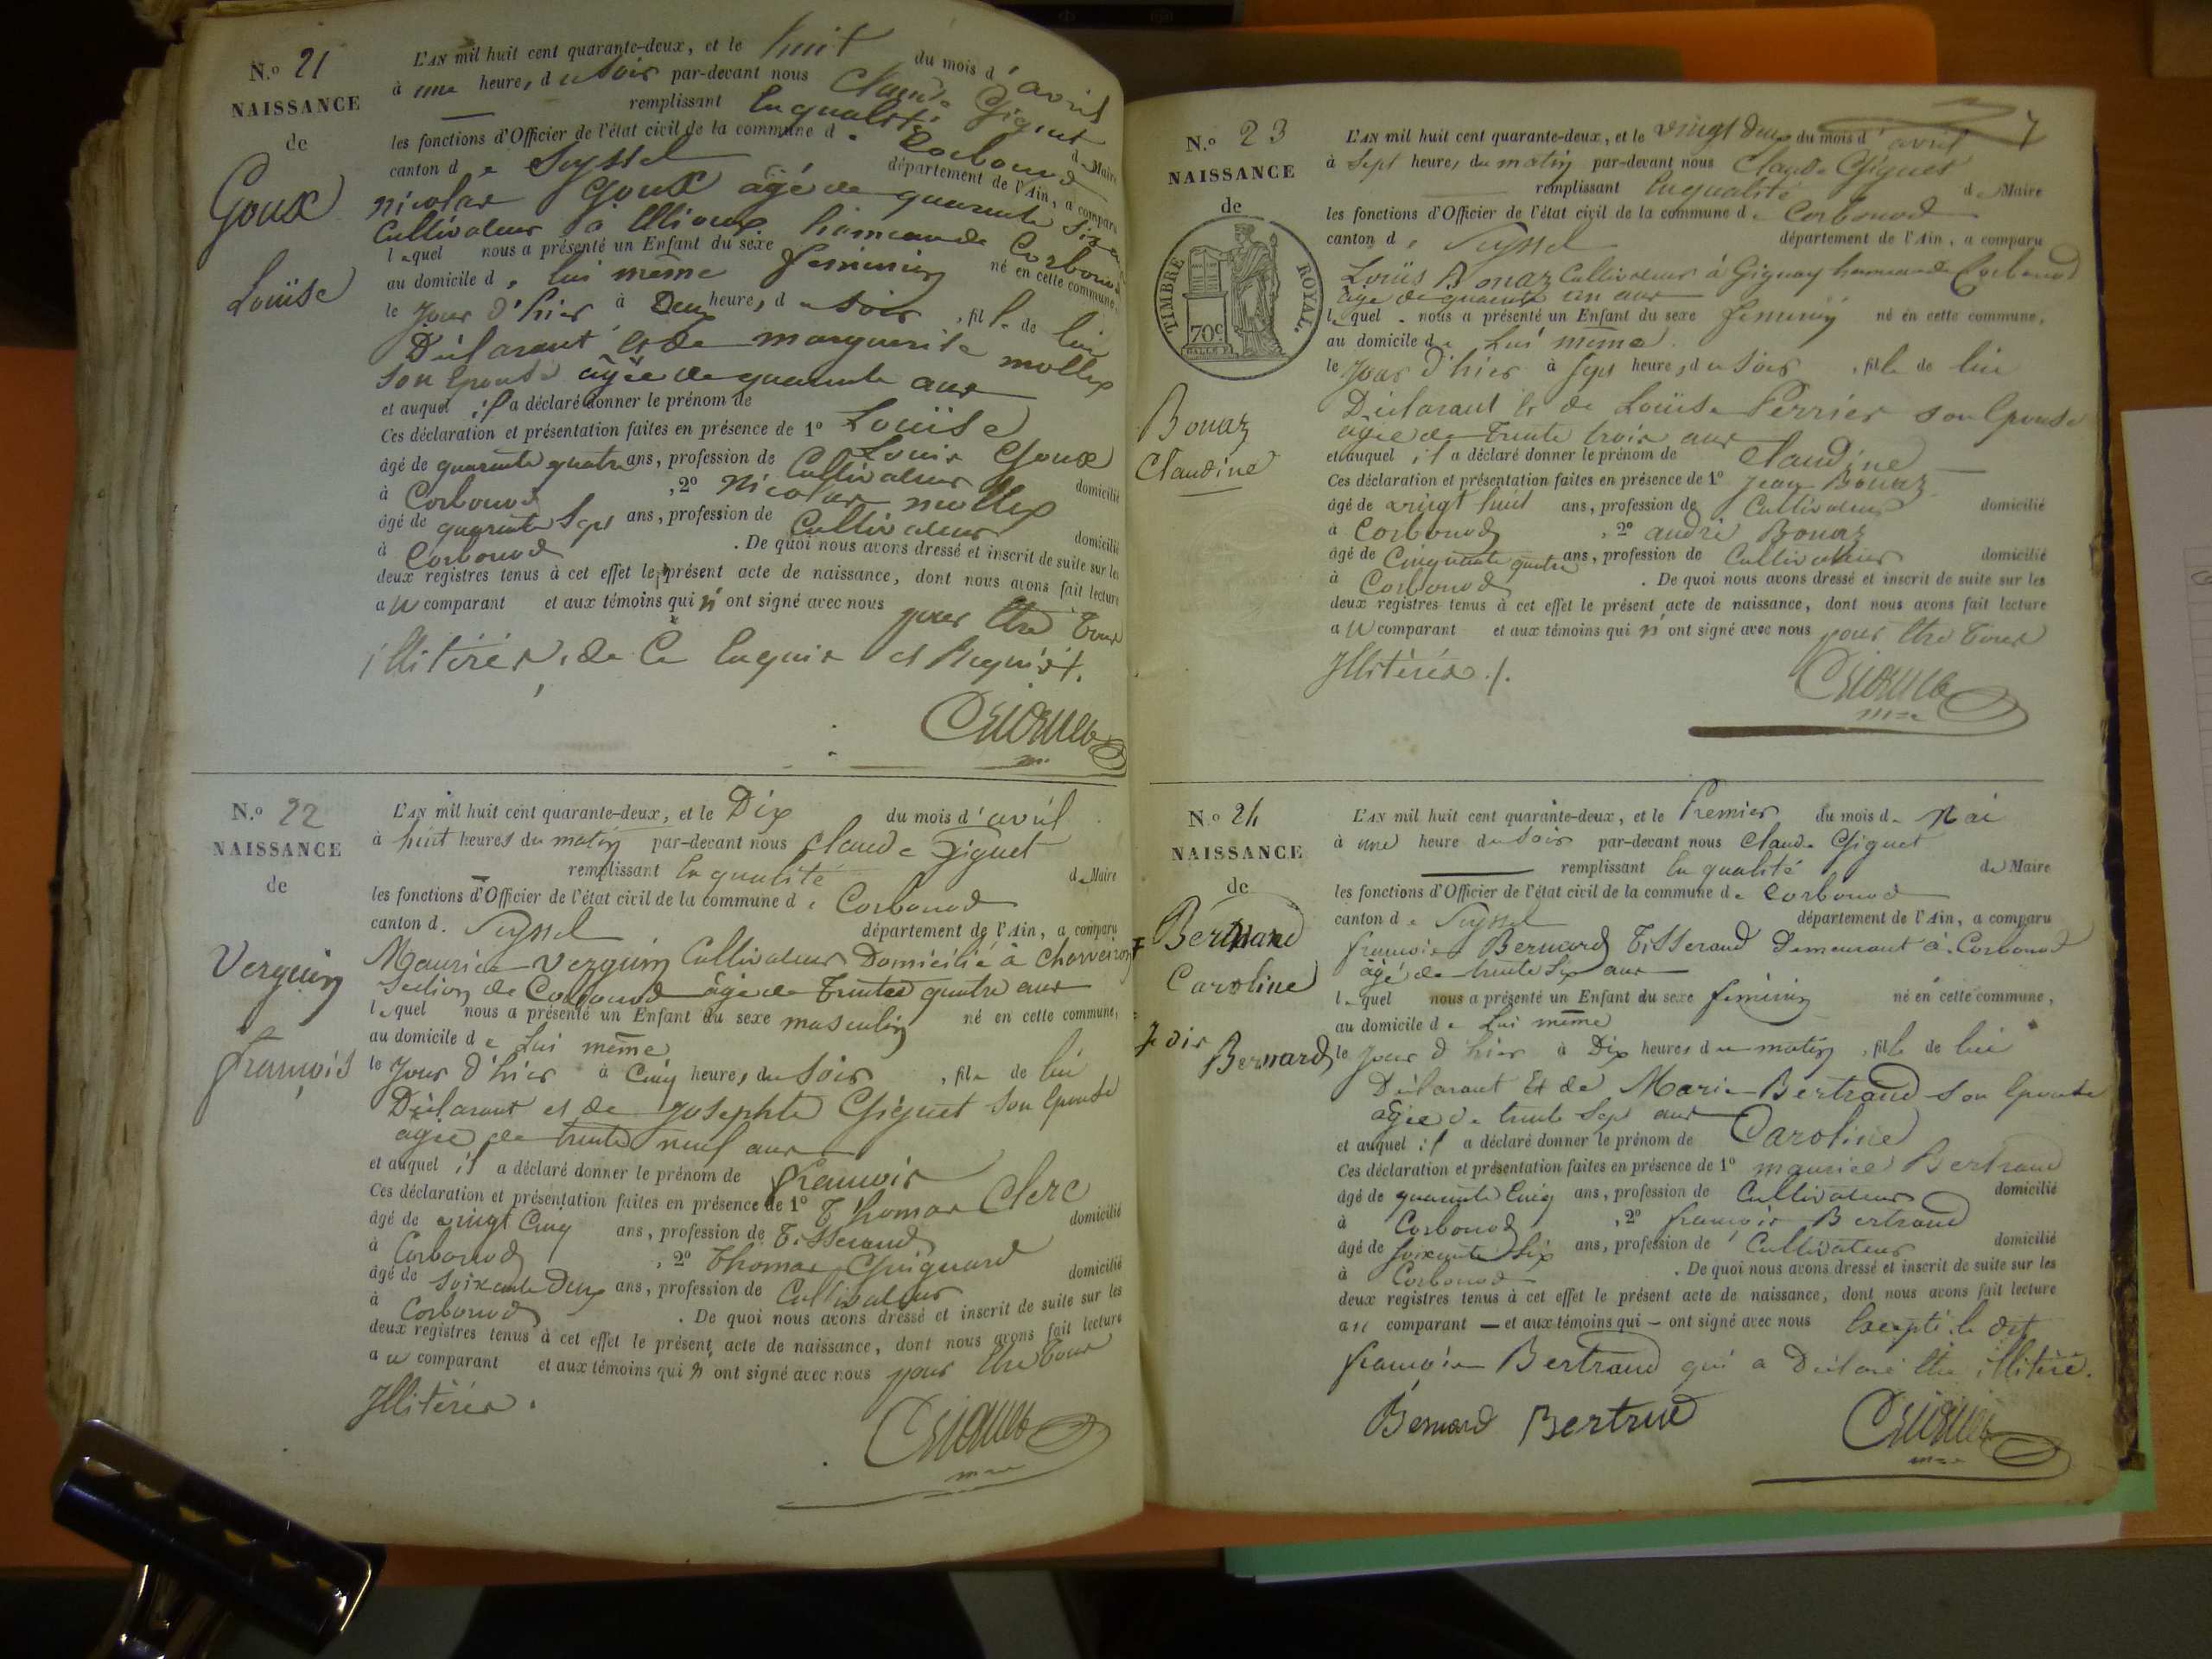 N.o 21
NAISSANCE
de
Goux
Louise
L'AN mil huit cent quarante-deux, et le huit du mois d'avril
à une heure, du soir par-devant nous Claude Giguet
remplissant En qualité de Maire
les fonctions d'Officier de l'état civil de la commune de Corbonod
canton de Seyssel département de l'Ain, a comparu
nicolas Goux âgé de quarante six ans
Cultivateur à hameau de Corbonod
lequel nous a présenté un Enfant du sexe feminin né en cette commune,
au domicile de lui même
le Jour d'hier à Deux heure, du soir, fille de lui
Déclarant et de marguerite mollex
son Epouse agée de quarante ans
et auquel il a déclaré donner le prénom de Louise
Ces déclaration et présentation faites en présence de 1o Louis Goux
âgé de quarante quatre ans, profession de Cultivateur domicilié
à Corbonod, 2o nicolas mollex
âgé de quarante Sept ans, profession de Cultivateur domicilié
à Corbonod. De quoi nous avons dressé et inscrit de suite sur les
deux registres tenus à cet effet le présent acte de naissance, dont nous avons fait lecture
au comparant et aux témoins qui n'ont signé avec nous pour être tous
illitérés, de ce Enquis et Requis.
N.o 22
NAISSANCE
de
Verguin
françois
L'AN mil huit cent quarante-deux, et le Dix du mois d'avril
à huit heures du matin par-devant nous Claude Giguet
remplissant En qualité de Maire
les fonctions d'Officier de l'état civil de la commune de Corbonod
canton de Seyssel département de l'Ain, a comparu
Maurice Verguin Cultivateur Domicilié à
Section de Corbonod âgé de trente quatre ans
lequel nous a présenté un Enfant du sexe masculin né en cette commune,
au domicile de Lui même
le Jour d'hier à Cinq heure, du soir, fils de lui
Déclarant et de Josephte Giguet son Epouse
agée de trente neuf ans
et auquel il a déclaré donner le prénom de françois
Ces déclaration et présentation faites en présence de 1o Thomas Clerc
âgé de vingt Cinq ans, profession de Tisserand domicilié
à Corbonod, 2o Thomas Guignard
âgé de soixante Deux ans, profession de Cultivateur domicilié
à Corbonod. De quoi nous avons dressé et inscrit de suite sur les
deux registres tenus à cet effet le présent acte de naissance, dont nous avons fait lecture
au comparant et aux témoins qui n'ont signé avec nous pour être tous
Illitérés.
7
N.o 23
NAISSANCE
de
TIMBRE ROYAL.
70c
Bonaz
Claudine
L'AN mil huit cent quarante-deux, et le vingt deux du mois d'avril
à Sept heure, du matin par-devant nous Claude Giguet
remplissant En qualité de Maire
les fonctions d'Officier de l'état civil de la commune de Corbonod
canton de Seyssel département de l'Ain, a comparu
Louis Bonaz Cultivateur à Gignay hameau de Corbonod
âgé de quarante un ans
lequel nous a présenté un Enfant du sexe feminin né en cette commune,
au domicile de Lui même
le Jour d'hier à Sept heure, du soir, fille de lui
Déclarant et de Louise Perrier son Epouse
agée de trente trois ans
et auquel il a déclaré donner le prénom de Claudine
Ces déclaration et présentation faites en présence de 1o Jean Bonaz
âgé de vingt huit ans, profession de Cultivateur domicilié
à Corbonod, 2o andré Bonaz
âgé de Cinquante quatre ans, profession de Cultivateur domicilié
à Corbonod. De quoi nous avons dressé et inscrit de suite sur les
deux registres tenus à cet effet le présent acte de naissance, dont nous avons fait lecture
au comparant et aux témoins qui n'ont signé avec nous pour être tous
Illitérés.
N.o 24
NAISSANCE
de
Bertrand
Caroline
Bernard
L'AN mil huit cent quarante-deux, et le Premier du mois de Mai
à une heure du soir par-devant nous Claude Giguet
remplissant En qualité de Maire
les fonctions d'Officier de l'état civil de la commune de Corbonod
canton de Seyssel département de l'Ain, a comparu
françois Bernard Tisserand Demeurant à Corbonod
âgé de trente Six ans
lequel nous a présenté un Enfant du sexe feminin né en cette commune,
au domicile de Lui même
le Jour d'hier à Dix heures du matin, fille de lui
Déclarant Et de Marie Bertrand son Epouse
agée de trente Sept ans
et auquel il a déclaré donner le prénom de Caroline
Ces déclaration et présentation faites en présence de 1o maurice Bertrand
âgé de quarante Cinq ans, profession de Cultivateur domicilié
à Corbonod, 2o françois Bertrand
âgé de soixante Six ans, profession de Cultivateur domicilié
à Corbonod. De quoi nous avons dressé et inscrit de suite sur les
deux registres tenus à cet effet le présent acte de naissance, dont nous avons fait lecture
au comparant — et aux témoins qui — ont signé avec nous Excepté le dit
françois Bertrand qui a Déclaré être illitéré.
Bernard Bertrand